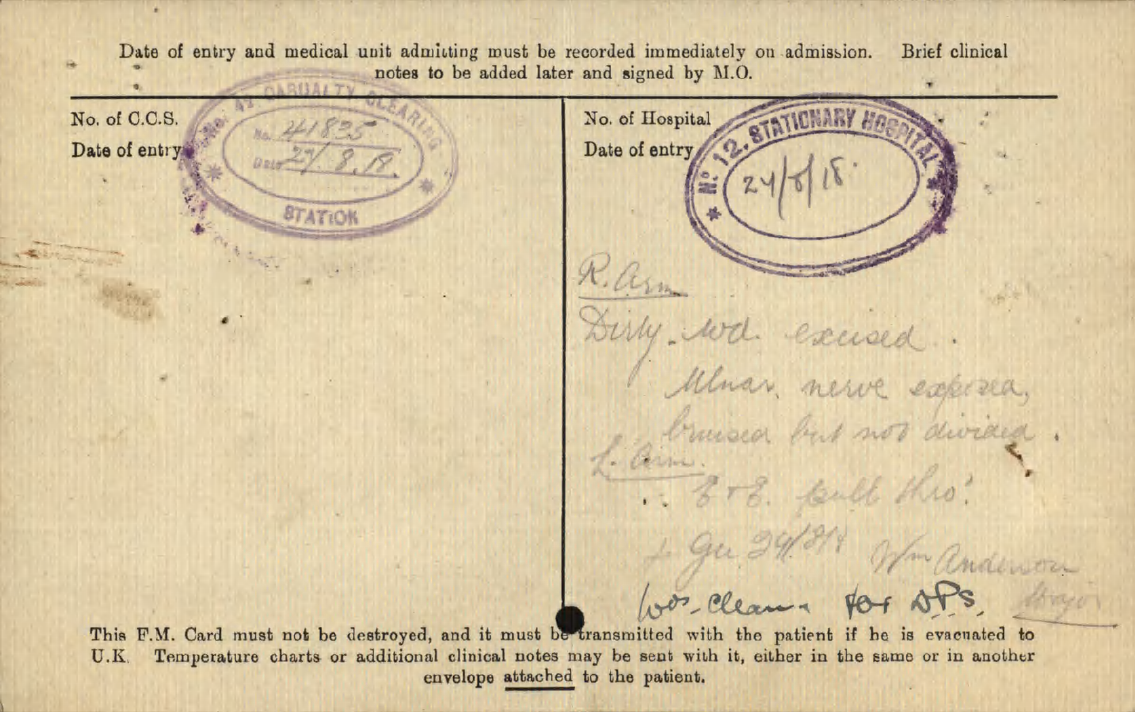 Date of entry and medical unit admitting must be recorded immediately on admission. Brief clinical
notes to be added later and signed by M.O.
No. of C.C.S.
Date of entry
No. CASUALTY CLEARING
No. 41835
Date 27/8.18.
STATION
No. of Hospital
Date of entry
No. 12. STATIONARY HOSPITAL
27/8/18.
R. Arm
Dirty wd. excised.
Ulnar nerve exposed,
bruised but not divided.
L. Arm.
E & E. pull thro'.
Wm Anderson
Major
Wds. Clean for DPS.
This F.M. Card must not be destroyed, and it must be transmitted with the patient if he is evacuated to
U.K. Temperature charts or additional clinical notes may be sent with it, either in the same or in another
envelope attached to the patient.